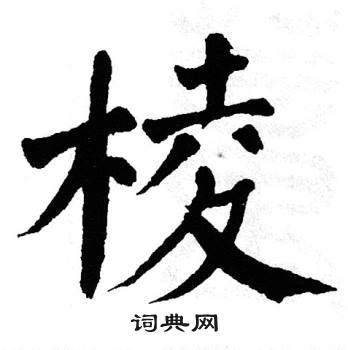 棱
词典网